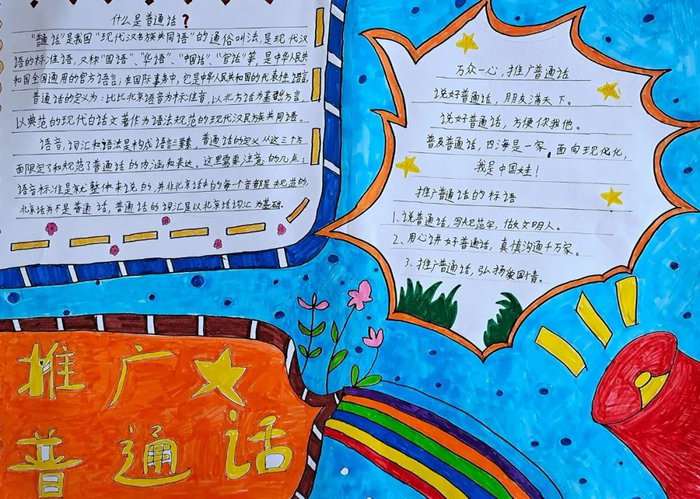 什么是普通话？
"普通话"是我国"现代汉民族共同语"的通俗叫法,是现代汉
语的标准语,又称"国语"、"华语"、"中国话"、"官话"等,是中华人民共
和国全国通用的官方语言,在国际事务中,它是中华人民共和国的代表性语言
普通话的定义为:比北京语音为标准音,以北方话为基础方言,
以典范的现代白话文著作为语法规范的现代汉民族共同语。
语音,词汇和语法是构成语言三要素,普通话的定义从这三方
面限定了和规范了普通话的内涵和表达,这里需要注意的几点,
语音标准是就整体来说的,并非北京话中的每一个音都是规范的,
北京话并不是普通话,普通话的词汇是以北京话词汇为基础.
万众一心,推广普通话
说好普通话,朋友满天下.
说好普通话,方便你我他.
普及普通话,四海是一家.面向现代化,
我是中国娃!
推广普通话的标语
1、说普通话,写规范字,做文明人。
2、用心讲好普通话,真情沟通千万家.
3、推广普通话,弘扬爱国情.
推广
普通话